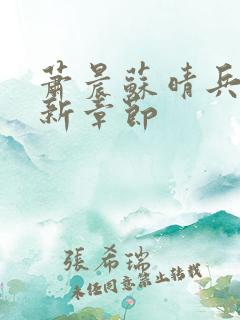 蕭晨蘇晴兵
新章節
張希瑞
未任同意禁止转载